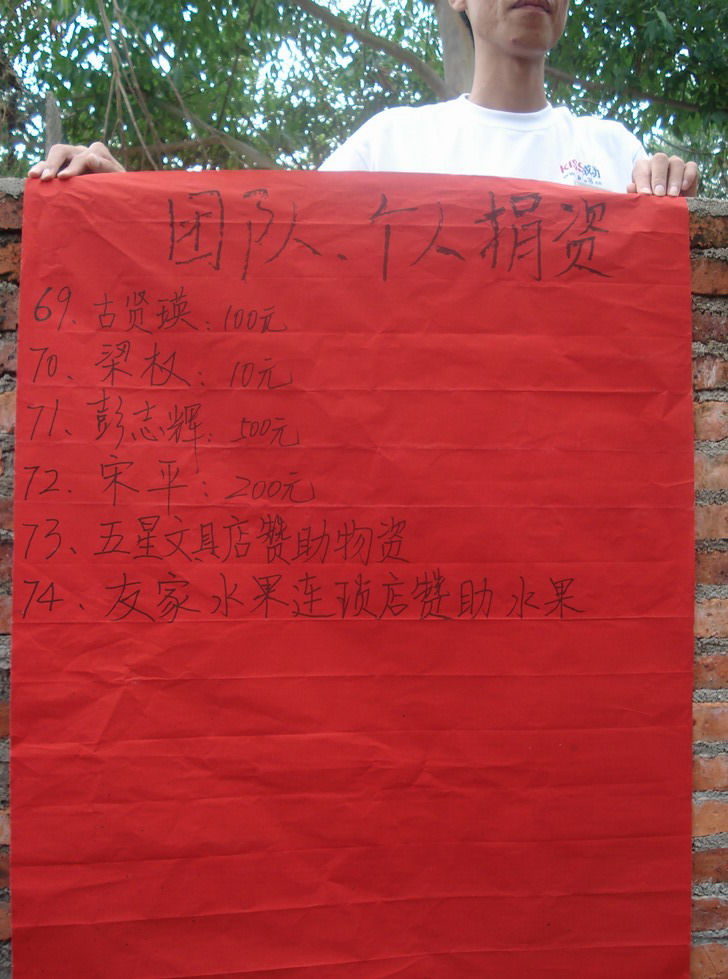 团队、个人捐资
69、古贤瑛：100元
70、梁权：10元
71、彭志辉：500元
72、宋平：200元
73、五星文具店赞助物资
74、友家水果连锁店赞助水果